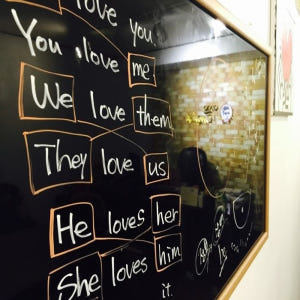 love you
You love me
We love them
They love us
He loves her
She loves him
it